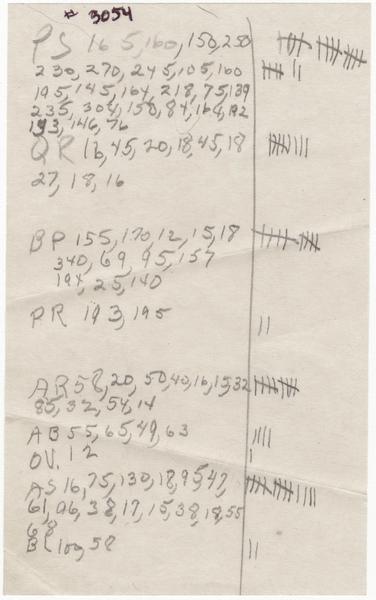 # 3054
PS 165,160,150,250
230,270,245,105,160
195,145,164,218,75,139
235,304,150,84,164,192
193,146,76
QR 16,45,20,18,45,18
27,18,16
BP 155,170,12,15,18
340,69,95,157
194,25,140
PR 193,195
AR 58,20,50,40,16,15,32
85,32,54,14
AB 55,65,49,63
OV. 12
AS 16,75,130,18,95,47,
61,96,38,17,15,38,18,55
68
BL 100,58